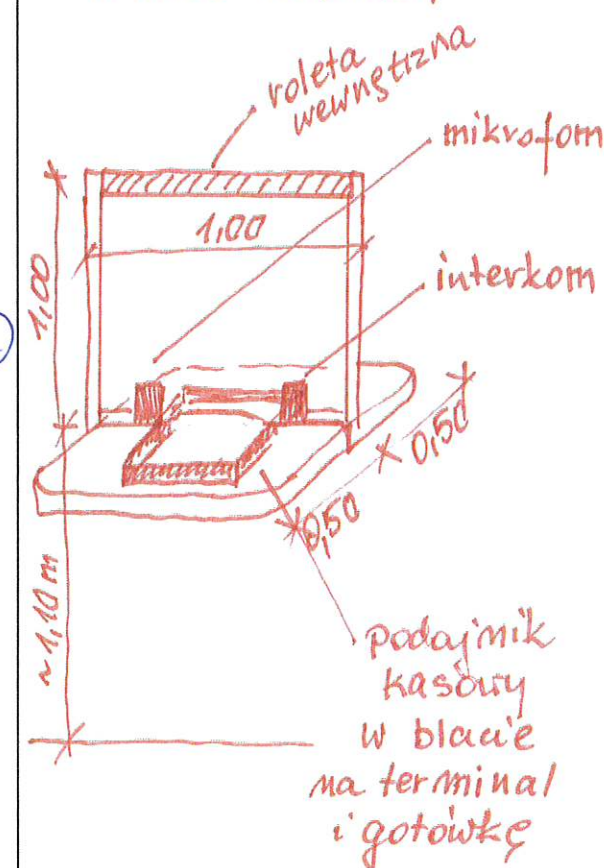 roleta
wewnętrzna
mikrofon
1,00
1,00
interkom
0,50
0,50
~1,10m
podajnik
kasowy
w blacie
na terminal
i gotówkę